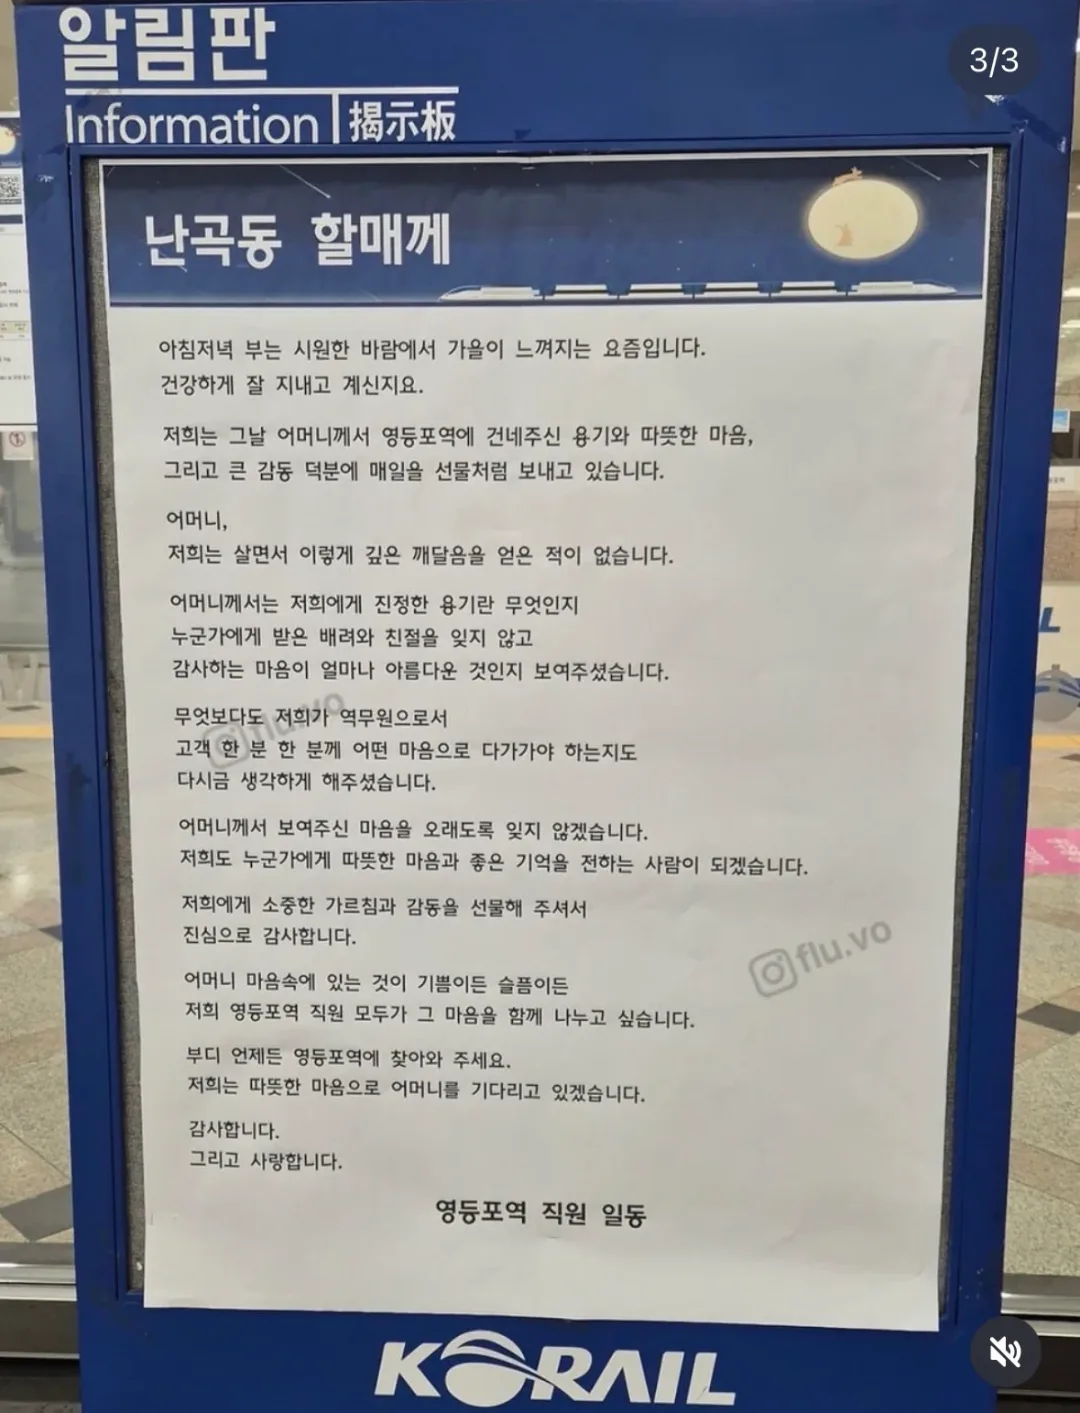 알림판
3/3
Information 揭示板
난곡동 할매께
아침저녁 부는 시원한 바람에서 가을이 느껴지는 요즘입니다.
건강하게 잘 지내고 계신지요.
저희는 그날 어머니께서 영등포역에 건네주신 용기와 따뜻한 마음,
그리고 큰 감동 덕분에 매일을 선물처럼 보내고 있습니다.
어머니,
저희는 살면서 이렇게 깊은 깨달음을 얻은 적이 없습니다.
어머니께서는 저희에게 진정한 용기란 무엇인지
누군가에게 받은 배려와 친절을 잊지 않고
감사하는 마음이 얼마나 아름다운 것인지 보여주셨습니다.
무엇보다도 저희가 역무원으로서
고객 한 분 한 분께 어떤 마음으로 다가가야 하는지도
다시금 생각하게 해주셨습니다.
어머니께서 보여주신 마음을 오래도록 잊지 않겠습니다.
저희도 누군가에게 따뜻한 마음과 좋은 기억을 전하는 사람이 되겠습니다.
저희에게 소중한 가르침과 감동을 선물해 주셔서
진심으로 감사합니다.
어머니 마음속에 있는 것이 기쁨이든 슬픔이든
저희 영등포역 직원 모두가 그 마음을 함께 나누고 싶습니다.
부디 언제든 영등포역에 찾아와 주세요.
저희는 따뜻한 마음으로 어머니를 기다리고 있겠습니다.
감사합니다.
그리고 사랑합니다.
영등포역 직원 일동
flu.vo
flu.vo
KORAIL